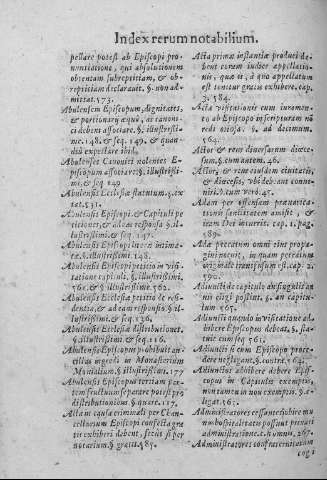 Index rerum notabilium.
pellare potest ab Episcopi pro-
nuntiatione, qui absolutionem
obtentam subreptitiam, & ob-
reptitiam declarauit. §. non ad-
mittat. 173.
Abulensem Episcopum, dignitates,
& portionarij æquè, ac canoni-
ci debent associare. §. illustrissi-
mè. 148. & seq. 149. & quan-
diù expectare ibid.
Abulenses Canonici nolentes E-
piscopum associare. §. illustrissi-
mi. & seq 149
Abulensis Ecclesiæ statutum. §.
tat. 531.
Abulensis Episcopi, & Capituli pe-
titiones, & ad eam responsa §. il-
lustrissimi. & seq 147.
Abulensis Episcopi
illustrissimi. 148.
Abulensis Episcopi petitio in visi-
tatione capituli. §. illustrissimè.
561. & §. illustrissimè. 562.
Abulensis Ecclesiæ petitio de resi-
dentia, & ad eam responsio §. il-
lustrissimi, & seq. 136.
Abulensis Ecclesiæ distributiones.
§. illustrissimi & seq. 116.
Abulensis Episcopum prohibuit an-
cillas ingredi in Monasterium
Monialium. §. illustrissimi. 177
Abulensis Episcopus tertiam par-
tem fructuum separare potest pro
distributionibus §. quare. 117.
Acta in causa criminali per Can-
cellarium Episcopi confecta gra-
tis exhiberi debent, secùs si per
notarium. §. gratis. 585.
Acta primæ instantiæ produci de-
bent coram iudice appellatio-
nis, quæ is, à quo appellatum
est tenetur gratis exhibere. cap.
3. 584.
Acta visitationis cum iuramen-
to ab Episcopo in scripturam
redi otiosa. §. ad decimum.
164.
Actor & reus diuersarum diœce-
sum. §. cum autem. 46.
Actor, & reus eiusdem ciuitatis,
& diœcesis, vbi debeant conue-
niri. §. nam verò. 45.
Adam per offensam præuarica-
tionis sanctitatem amisit, &
iram Dei incurrit. cap. 1. pag.
589.
Adæ peccatum omni eius propa-
gini nocuit, in quam peccatum
originale transfusum est. cap. 2.
590.
Adiuncti de capitulo an
nij eligi possint. §. an capitu-
lum 567.
Adiunctos quando in visitatione ad-
hibere Episcopus debeat. §. statu-
tum. & seq 561.
Adiuncti si cum Episcopo proce-
dere negligant. §. contrà. 564.
Adiunctos adhibere debere Epis-
copus in Capitulis exemptis,
non tamen in non exemptis. §. e-
ligat. 561.
Administratores cessante subire mu-
nus hospitalitatis possunt priuari
administratione. c. Numnis. 267.
Administratores confraternitatum
cogi